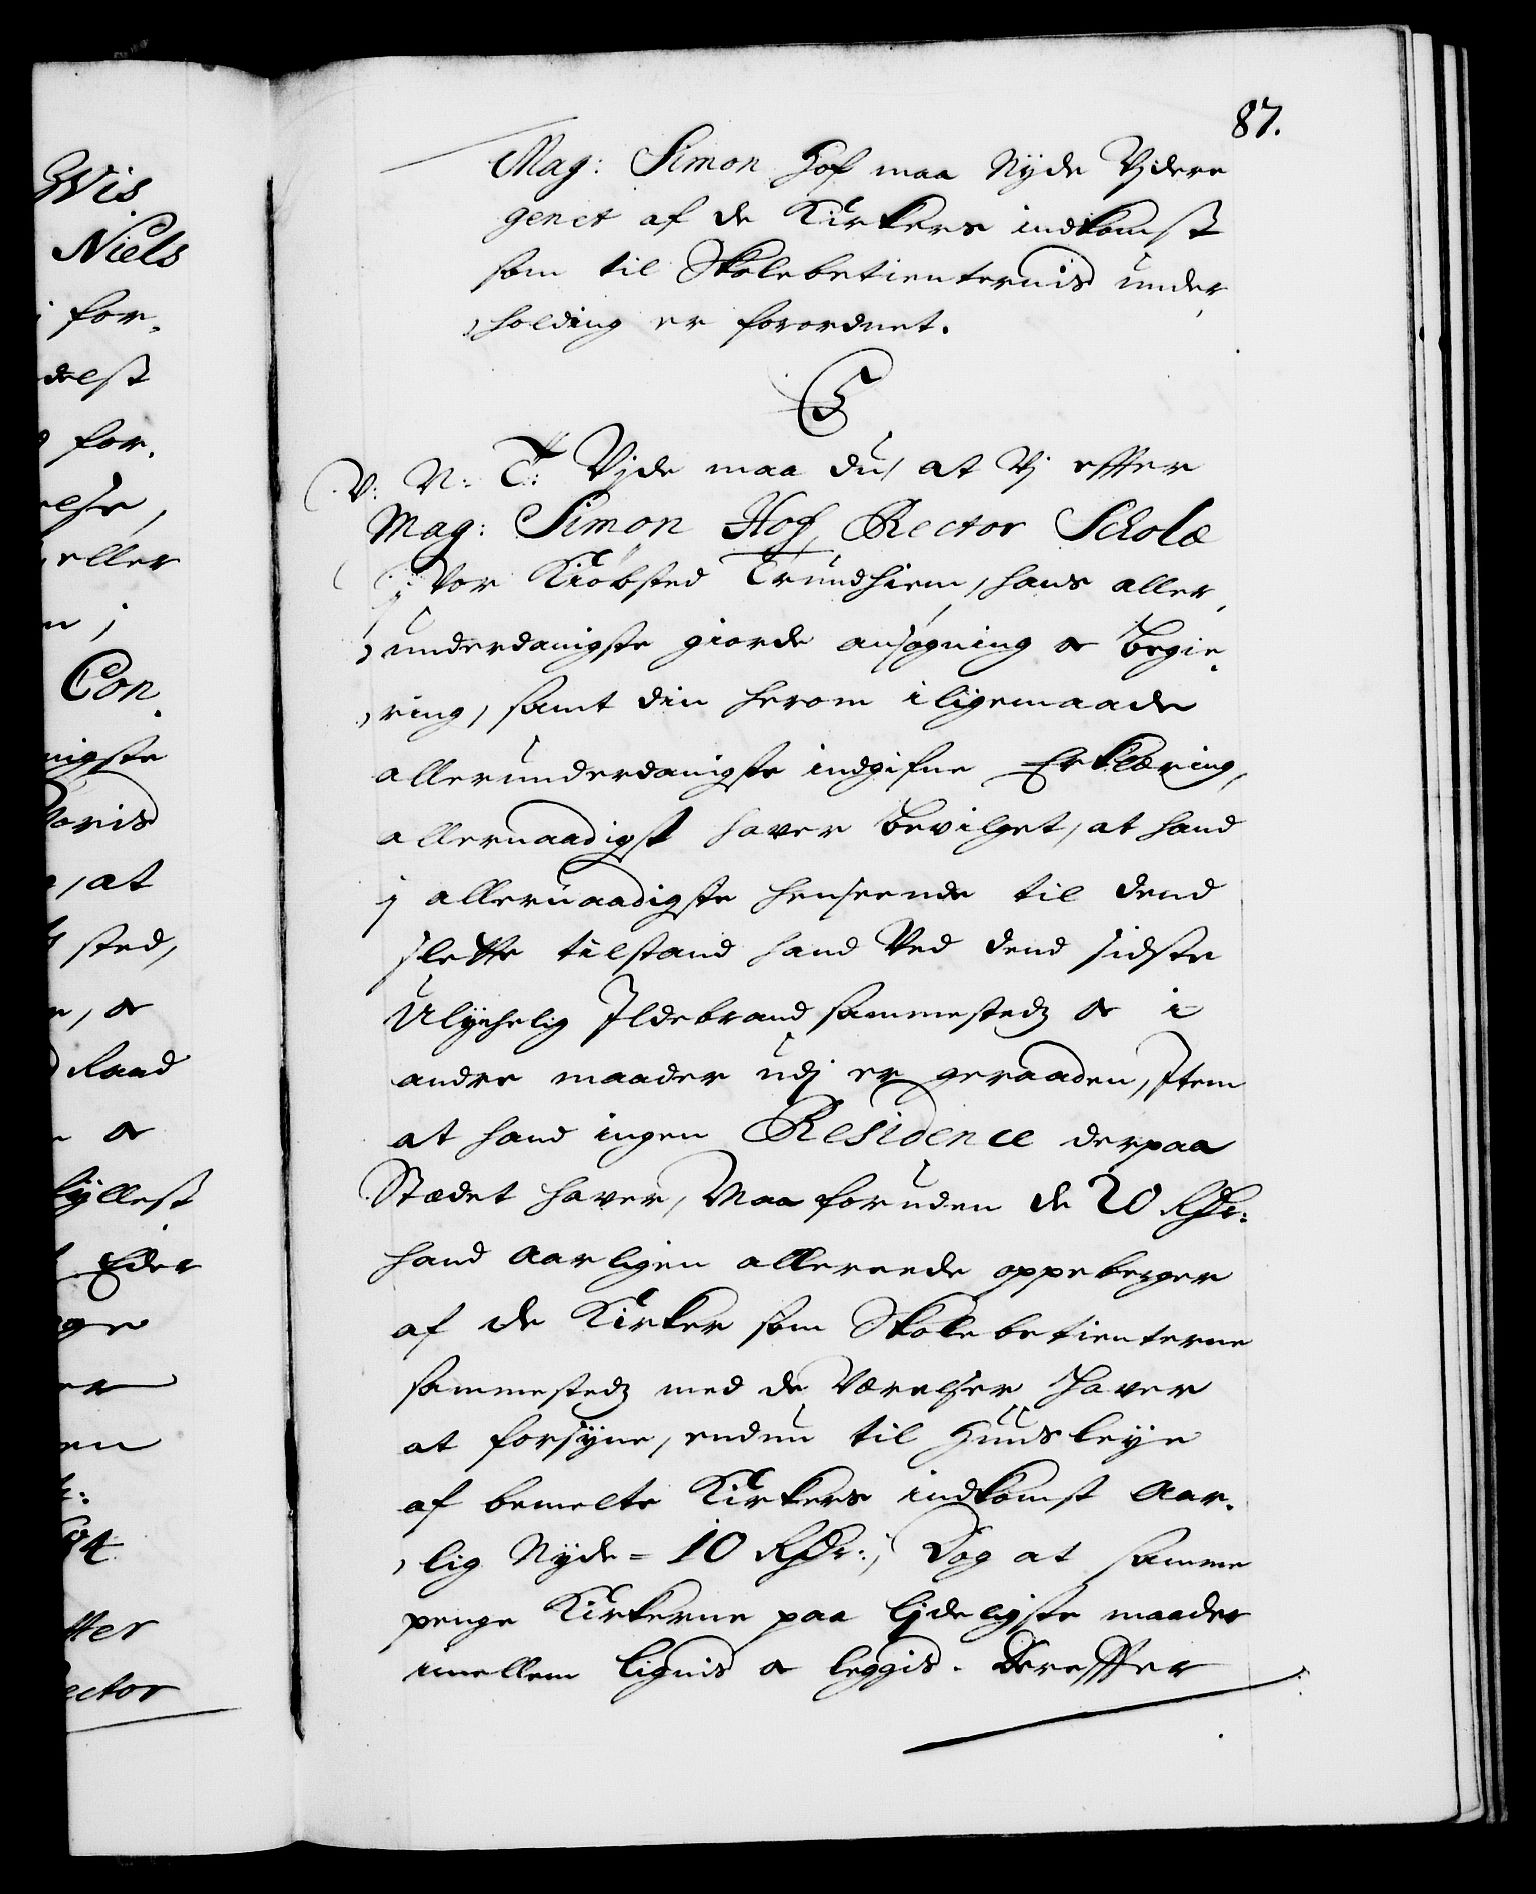 87.
Mag: Simon Hof maa Nyde Vjdere
genet af de Kirkers indkomst
som til Skolebetienternis under,
,holding er forordnet.
C5
V: N: T: Vjde maa du, at Vj effter
Mag: Simon Hof, Rector Scholæ
j Vor Kiøbsted Trundhiem, hans aller,
,underdanigste giorde ansøgning og Begie,
,ring, samt din herom i ligemaade
allerunderdanigste indgifne Erklæring,
allernaadigst haver Bevilget, at hand
j allernaadigste henseende til dend
slette tilstand hand Ved dend sidste
Ulychelig Jldebrand sammestedz og i
andre maader udj er geraaden, Jtem
at hand ingen Residence der paa
Stædet haver, Maa foruden de 20 Rdr:
hand Aarligen allereede oppeberger
af de Kirker som Skolebetienterne
sammestedz med de Værelser haver
at forsyne, endnu til Huusleye
af bemelte Kirkers indkomst Aar,
,lig Nyde = 10 Rdr:, Dog at samme
penge Kirkerne paa ljdeligste maader
imellem lignis og leggis. Dereffter
Wis
Niels
for,
delst
for,
else,
eller
Con,
nigste
, at
sted,
, og
Raad
og
fyllest
Eder
ge
er
en
ector